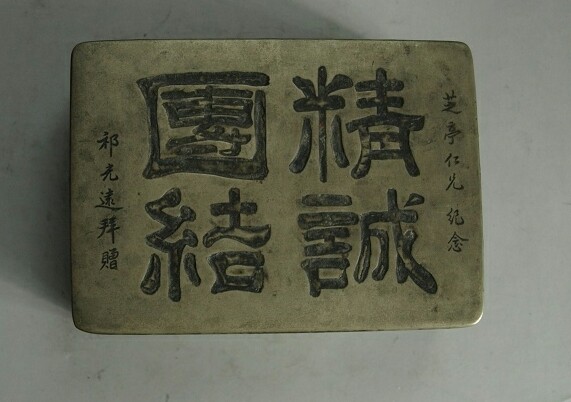 芝亭仁兄 紀念
精誠
團結
祁光遠拜贈